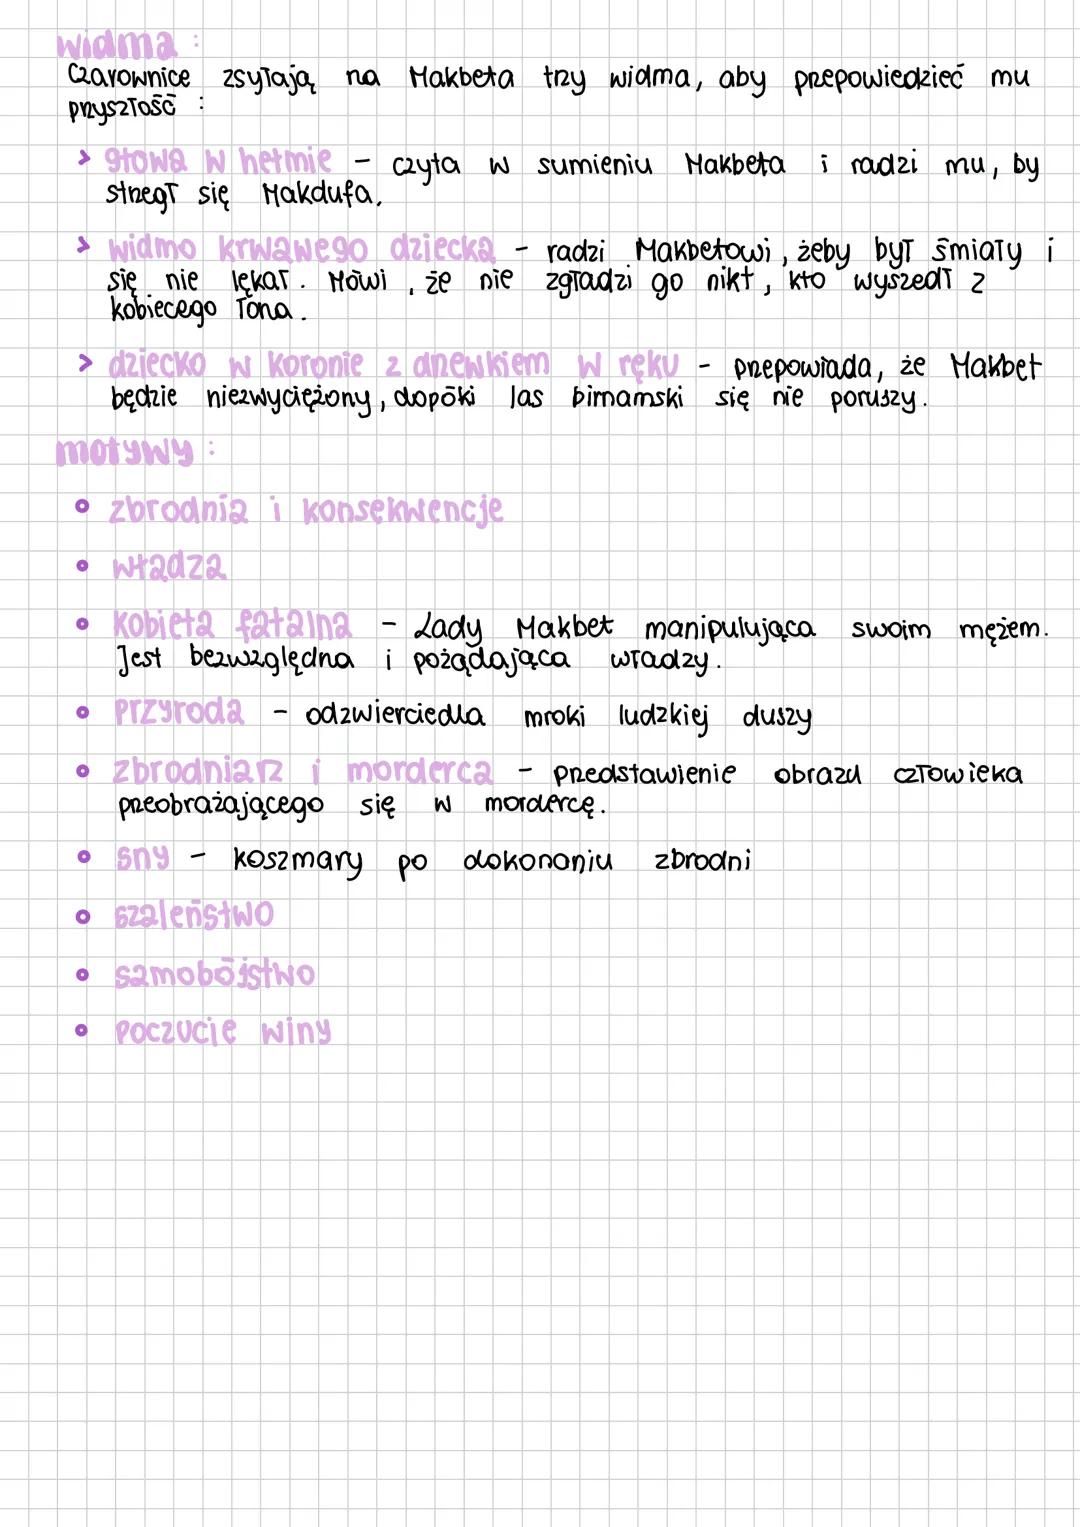 widma :
Czarownice zsyłają na Makbeta trzy widma, aby przepowiedzieć mu
przyszłość :
> głowa w hełmie - czyta w sumieniu Makbeta i radzi mu, by
strzegł się Makdufa.
> widmo krwawego dziecka - radzi Makbetowi, żeby był śmiały i
się nie lękał. Mówi, że nie zgładzi go nikt, kto wyszedł z
kobiecego łona.
> dziecko w koronie z drzewkiem w ręku - przepowiada, że Makbet
będzie niezwyciężony, dopóki las birnamski się nie poruszy.
motywy :
• zbrodnia i konsekwencje
• władza
• kobieta fatalna - Lady Makbet manipulująca swoim mężem.
Jest bezwzględna i pożądająca władzy.
• przyroda - odzwierciedla mroki ludzkiej duszy
• zbrodniarz i morderca - przedstawienie obrazu człowieka
przeobrażającego się w mordercę.
• sny - koszmary po dokonaniu zbrodni
• szaleństwo
• samobójstwo
• poczucie winy